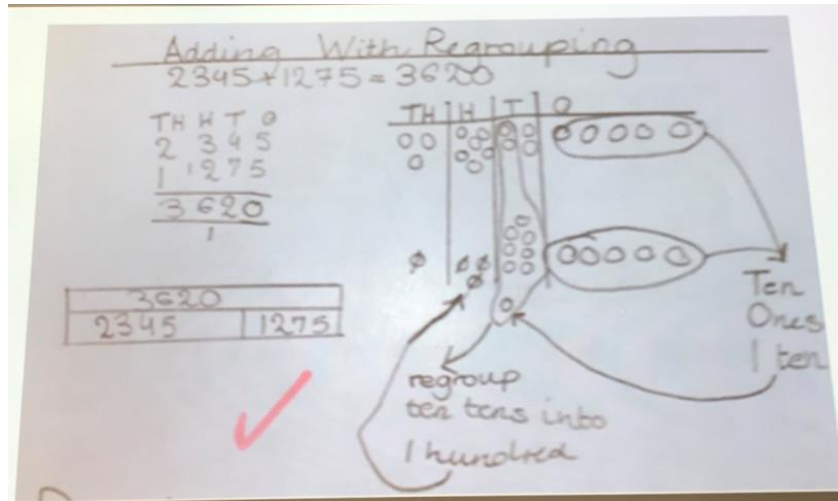 Adding With Regrouping
2345+1275=3620
TH H T O
2 3 4 5
1 1 2 7 5
3 6 2 0
1
3620
2345 1275
TH H T O
Ten
Ones
1 ten
regroup
ten tens into
1 hundred